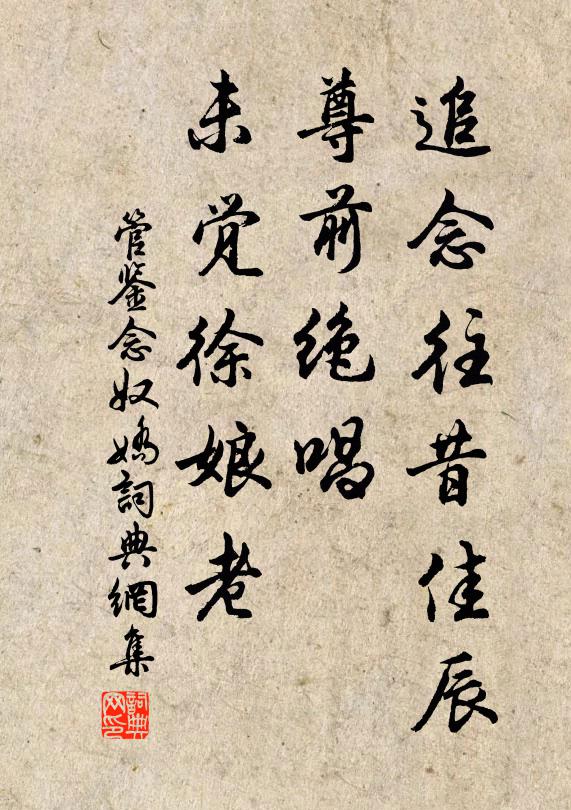 追念往昔佳辰
尊前绝唱
未觉徐娘老
管鉴念奴娇詞典網集
詞典网印